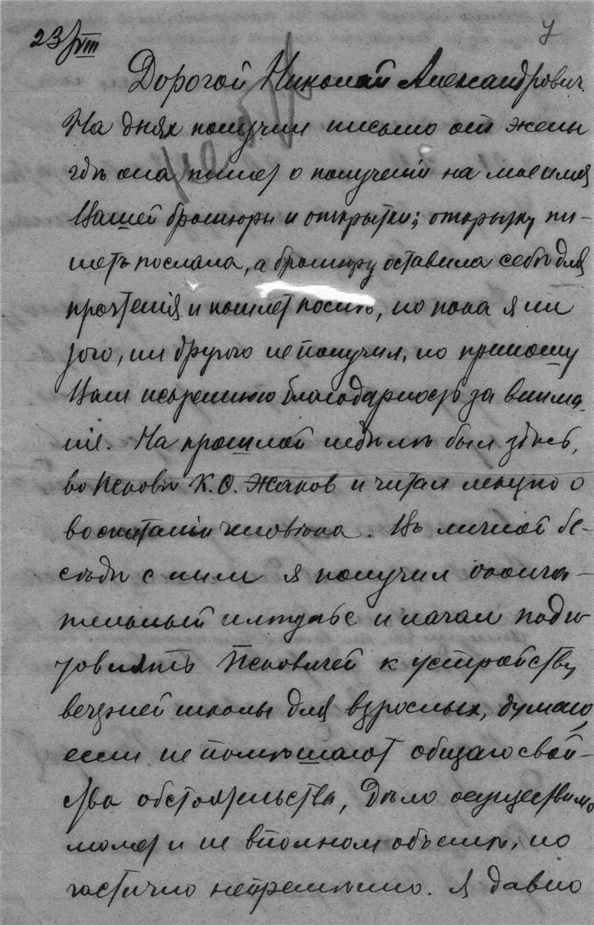 23/VIII 7
Дорогой Николай Александрович
На днях получил письмо от жены
гдѣ она пишет о получении на мое имя
Вашей брошюры и открытки; открытку, пи-
шетъ послала, а брошюру оставила себѣ для
прочтения и пошлет послѣ, но пока я ни
того, ни другого не получил, но приношу
Вам искреннюю благодарность за внима-
ніе. На прошлой недѣлѣ был здѣсь,
во Псковѣ К. О. Жаков и читал лекцию о
воспитании человѣка. Въ личной бе-
сѣдѣ с ним я получил оконча-
тельный импульс и начал подго-
товлять Псковичей к устройству
вечерней школы для взрослых, думаю,
если не помѣшают общаго свой-
ства обстоятельства, дѣло осуществимо
может и не вполном объемѣ, но
частично непремѣнно. Я давно